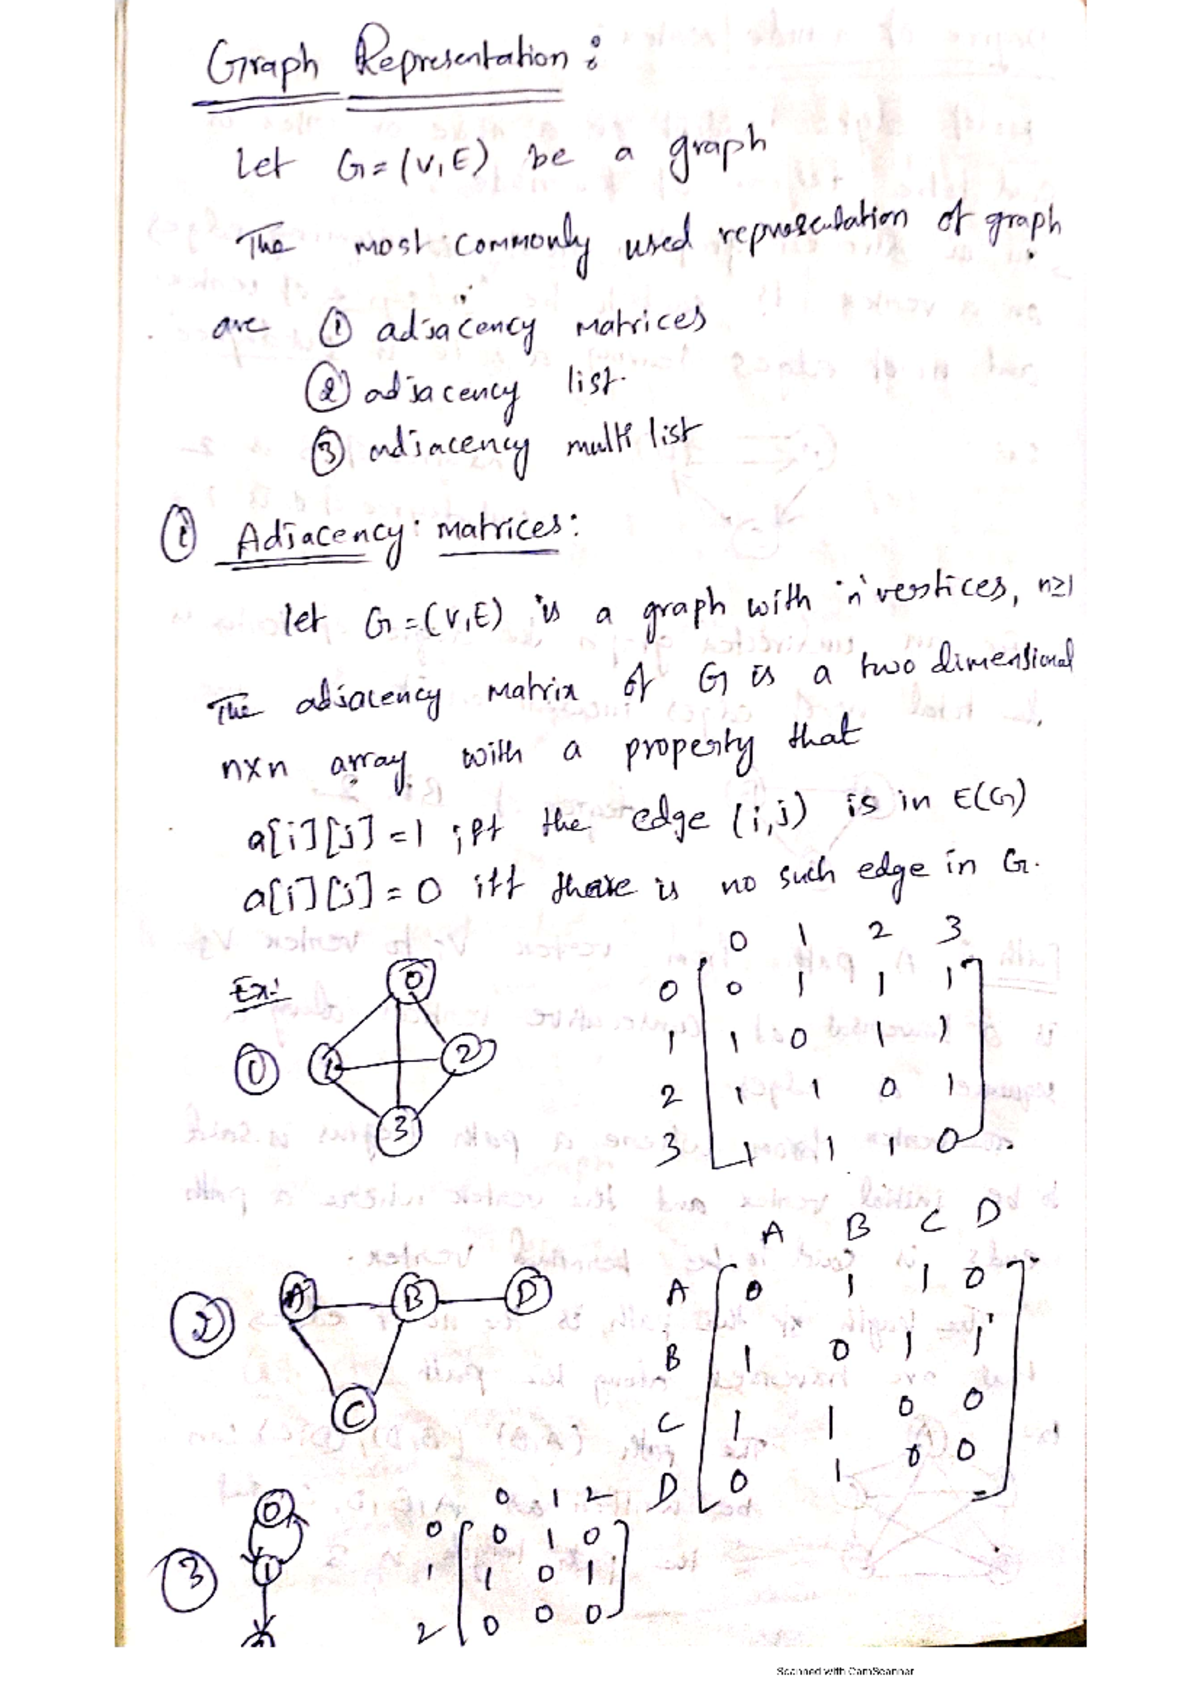 Graph Representation :
Let G=(V,E) be a graph
The most commonly used representation of graph
are ① adjacency matrices
② adjacency list.
③ adjacency multi list
① Adjacency matrices:
let G=(V,E) is a graph with 'n' verstices, n≥1
The adjacency matrix of G is a two dimensional
nxn array with a property that
a[i][j]=1 iff the edge (i,j) is in E(G)
a[i][j]=0 iff there is no such edge in G.
Ex:
①
0
1 2
3
0 1 2 3
0 0 1 1 1
1 1 0 1 1
2 1 1 0 1
3 1 1 1 0
②
A B D
C
A B C D
A 0 1 1 0
B 1 0 1 1
C 1 1 0 0
D 0 1 0 0
③
0
1
0 1 2
0 0 1 0
1 1 0 1
2 0 0 0
Scanned with CamScanner